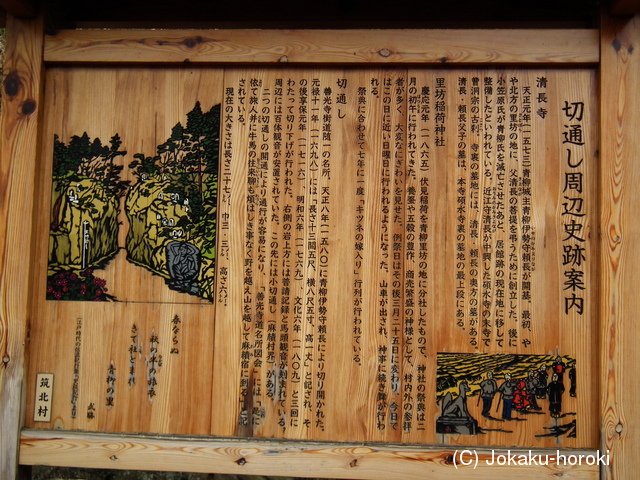 切通し周辺史跡案内
清長寺
天正元年(一五七三)青柳城主青柳伊勢守頼長が開基。最初、や
や北方の里坊の地に、父清長の菩提を弔うために創立した。後に
小笠原氏が青柳氏を滅亡させたあと、居館跡の現在地に移して
整備したといわれている。近江守清長が中興した碩水寺の末寺で
曹洞宗の古刹。寺裏の墓地には、清長・頼長の奥方の墓がある。
清長・頼長父子の墓は、本寺碩水寺裏の墓地の最上段にある。
里坊稲荷神社
慶応元年(一八六五)伏見稲荷を青柳里坊の地に分社したもので、神社の祭典は二
月の初午に行われてきた。養蚕や五穀の豊作、商売繁盛の神様として、村内外の参拝
者が多く、大変なにぎわいを見せた。例祭日はその後三月二十五日に変わり、今日で
はこの日に近い日曜日に行われるようになった。山車が出され、神事に続き舞が行わ
れる。
祭典に合わせて七年に一度「キツネの嫁入り」行列が行われている。
切通し
善光寺街道随一の名所。天正八年(一五八〇)に青柳伊勢守頼長により切り開かれた。
元禄十一年(一六九八)には「長さ十三間五尺、横八尺五寸、高一丈」と記され、そ
の後享保元年(一七一六)、明和六年(一七六九)、文化六年(一八〇九)と三回に
わたって切り下げが行われた。右側の岩上方には普請記録と馬頭観音が刻まれている。
周辺には百体観音が安置されていた。この先には小切通し(麻績村界)がある。
二つの切通しの開通により通行が容易になり、「善光寺道名所図会」には「
依て旅人并に牛馬の往来聊も煩はしき事なく野を越え山を越して麻績宿に到る」と記
されている。
現在の大きさは長さ二十七
春ならぬ
青柳の里
筑北村
(C) Jokaku-horoki